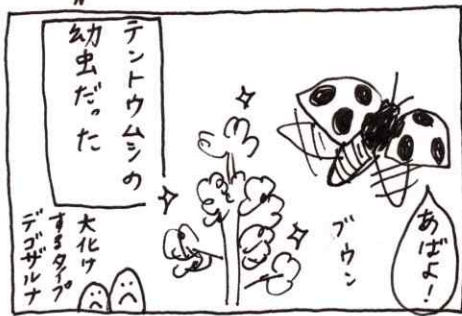 あばよ！
ブウン
テントウムシの
幼虫だった
大化け
するタイプ
デゴザルナ